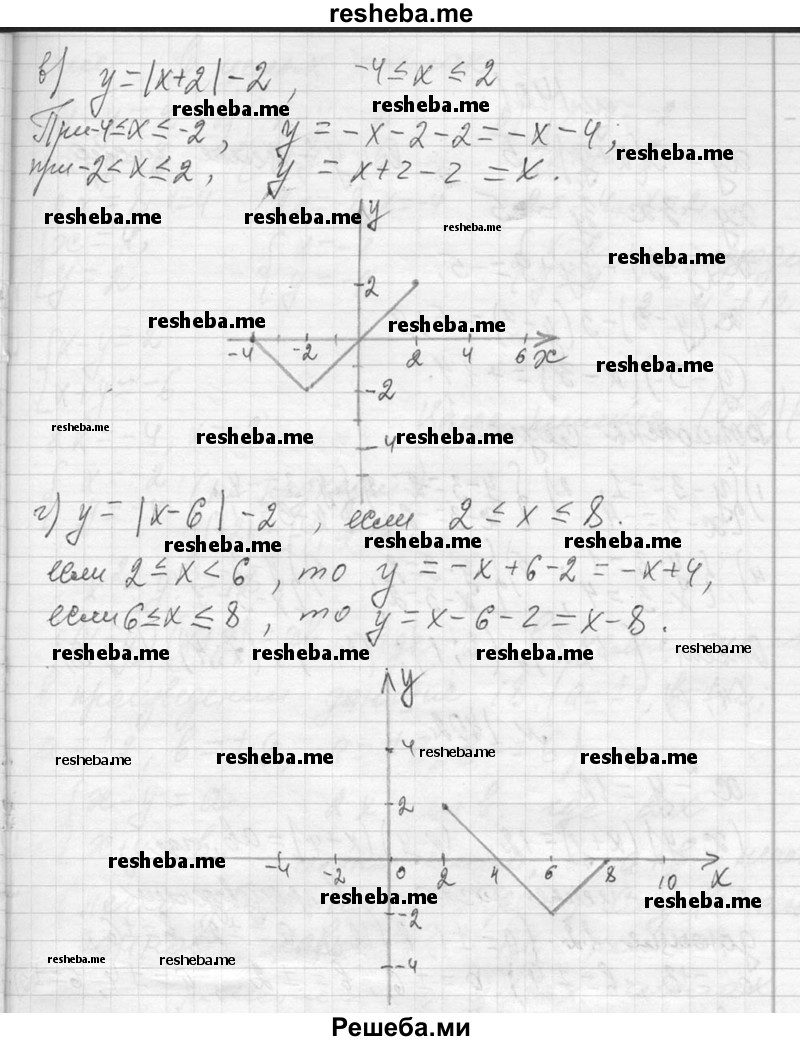 resheba.me
в) y = |x+2| - 2 , -4 ≤ x ≤ 2
resheba.me resheba.me
При -4 ≤ x ≤ -2 , y = -x - 2 - 2 = -x - 4 ;
resheba.me
при -2 < x ≤ 2 , y = x + 2 - 2 = x .
resheba.me resheba.me y resheba.me
resheba.me
2
resheba.me resheba.me
-4 -2 2 4 6 x
resheba.me
-2
resheba.me
resheba.me -4 resheba.me
г) y = |x-6| - 2 , если 2 ≤ x ≤ 8 .
resheba.me resheba.me resheba.me
если 2 ≤ x < 6 , то y = -x + 6 - 2 = -x + 4 ,
если 6 ≤ x ≤ 8 , то y = x - 6 - 2 = x - 8 .
resheba.me resheba.me resheba.me resheba.me
y
resheba.me resheba.me 4 resheba.me resheba.me
2
resheba.me
-4 -2 0 2 4 6 8 10 x
resheba.me resheba.me
-2
resheba.me resheba.me -4
Решеба.ми